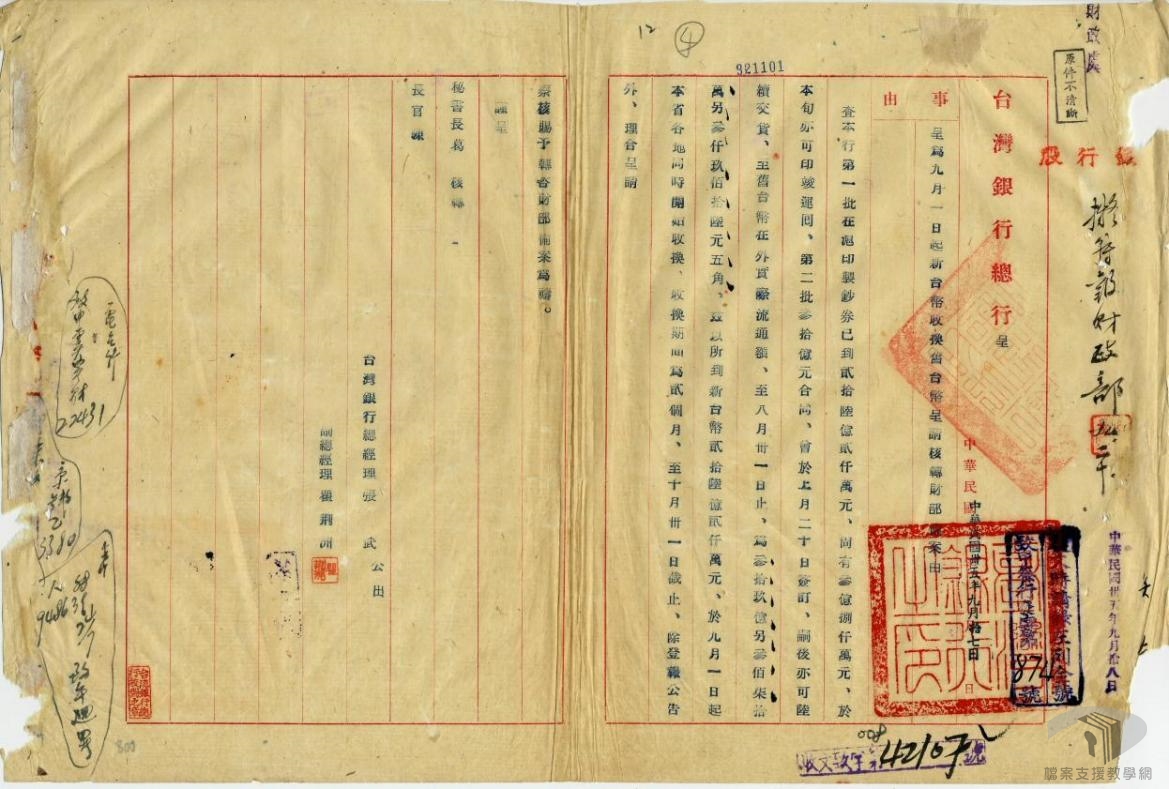 財政處
原件不清晰
銀行股
擬符報財政部
中華民國卅五年九月拾八日
12
4
921101
台灣銀行總行呈
事由
呈爲九月一日起新台幣收換舊台幣呈請核轉財部備案由
中華民國
中華民國卅五年九月拾七日
874
號
查本行第一批在滬印製鈔券已到貳拾陸億貳仟萬元、尚有參億捌仟萬元、於
本旬亦可印竣運回、第二批參拾億元合同、曾於上月二十日簽訂、嗣後亦可陸
續交貨、至舊台幣在外實際流通額、至八月卅一日止、爲參拾玖億另參佰柒拾
萬另參仟玖佰拾陸元五角、茲以所到新台幣貳拾陸億貳仟萬元、於九月一日起
本省各地同時開始收換、收換期間爲貳個月、至十月卅一日截止、除登報公告
外、理合呈請
察核賜予轉咨財部備案爲禱。
謹呈
秘書長葛 核轉
長官陳
台灣銀行總經理張 武 公出
副總經理瞿荆洲
22431
9486
008
收文致字第42107號
800
檔案支援教學網